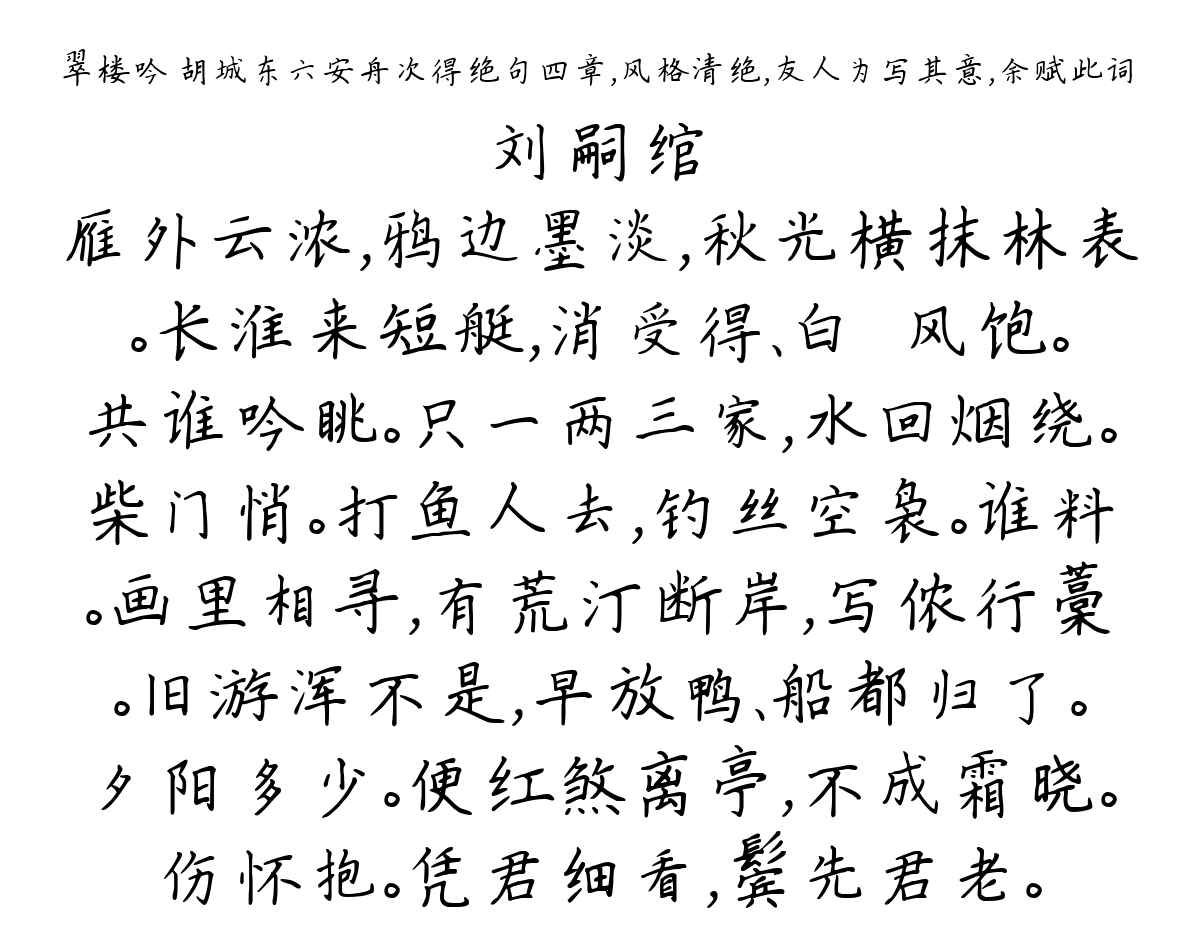 翠楼吟 胡城东六安舟次得绝句四章,风格清绝,友人为写其意,余赋此词
刘嗣绾
雁外云浓,鸦边墨淡,秋光横抹林表
。长淮来短艇,消受得、白 风饱。
共谁吟眺。只一两三家,水回烟绕。
柴门悄。打鱼人去,钓丝空袅。谁料
。画里相寻,有荒汀断岸,写侬行藁
。旧游浑不是,早放鸭、船都归了。
夕阳多少。便红煞离亭,不成霜晓。
伤怀抱。凭君细看,鬓先君老。